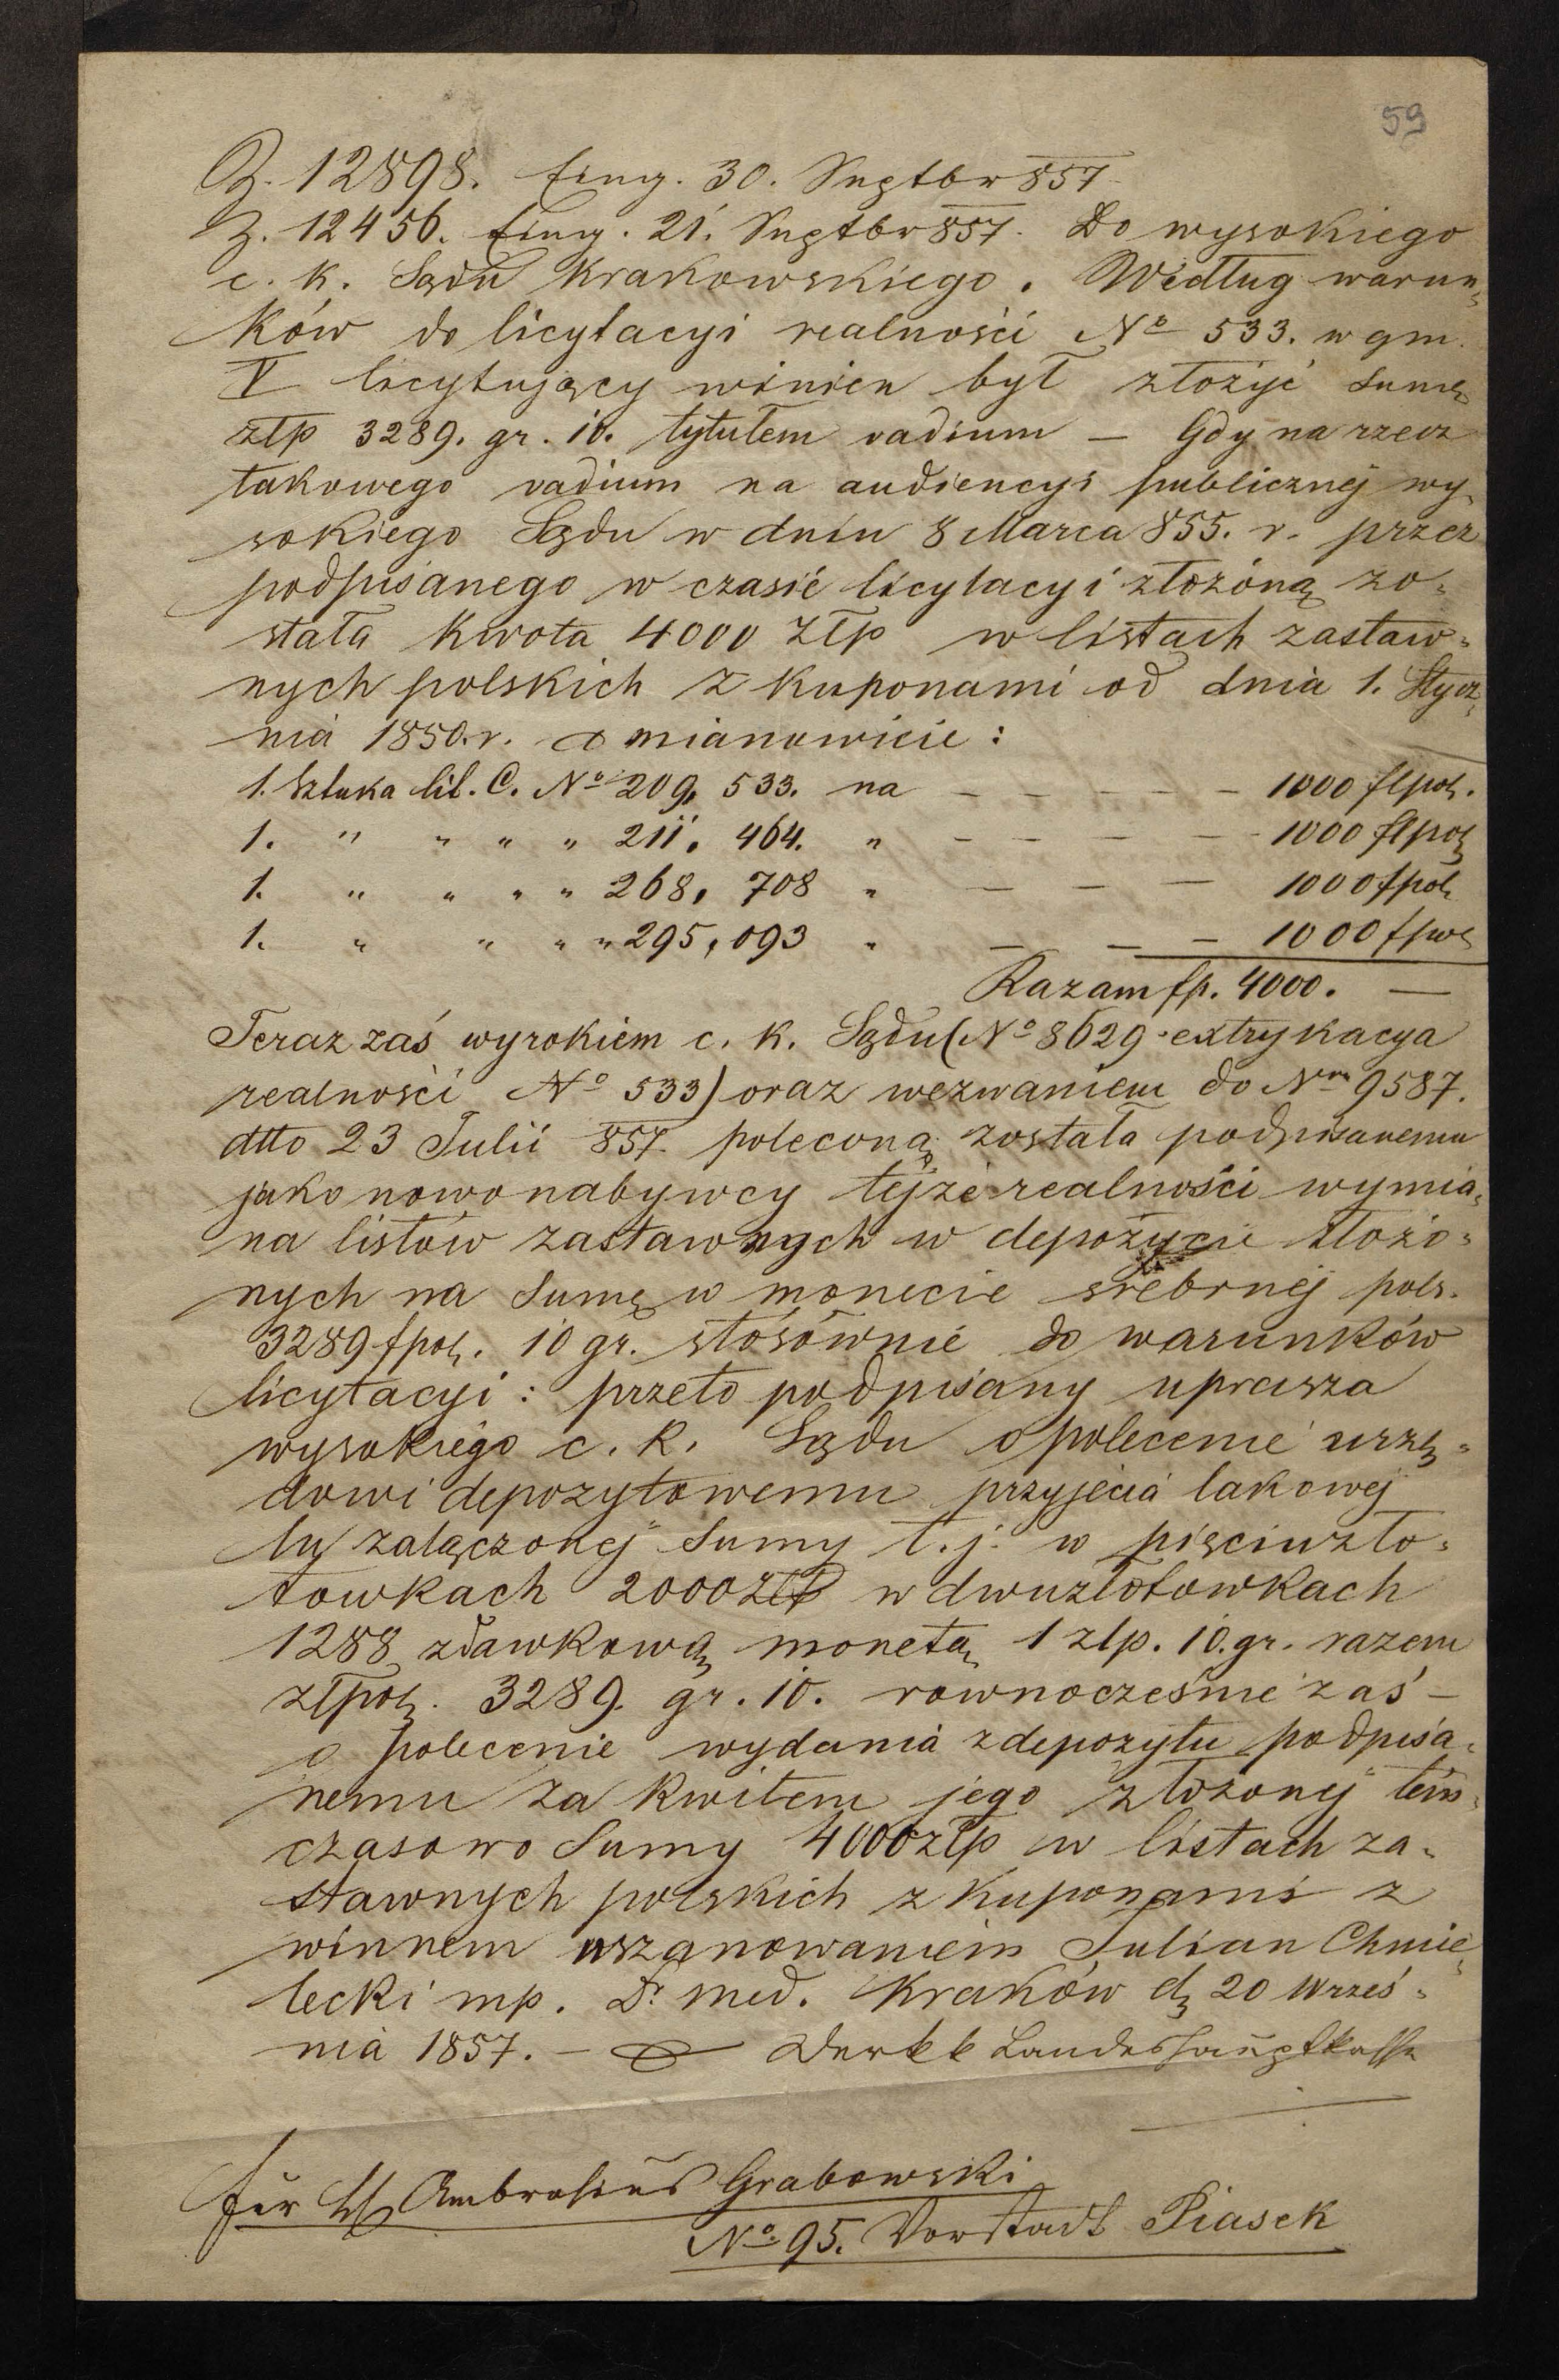 59
Z. 12898. Eing. 30. Septbr 857
Z. 12456. Eing. 21. Septbr 857. Do wysokiego
c. k. Sądu Krakowskiego. Według warun=
ków do licytacyi realności No 533. w gm.
V licytujący winien był złożyć sumę
złp 3289. gr. 10. tytułem vadium — Gdy na rzecz
takowego vadium na audiencyi publicznej wy=
sokiego Sądu w dniu 8 Marca 855. r. przez
podpisanego w czasie licytacyi złożoną zo=
stała kwota 4000 złp w listach zastaw=
nych polskich z kuponami od dnia 1. Stycz=
nia 1850. r. a mianowicie:
1. Sztuka lit. C. No 209, 533. na — — — — — 1000 flpol.
1. " " " " 211, 464. " — — — — 1000 flpol
1. " " " " 268, 708 " — — — 1000 fpol
1. " " " " 295, 093 " — — — 1000 fpol
Razam fp. 4000. —
Teraz zaś wyrokiem c. k. Sądu (No 8629 extrykacya
realności No 533) oraz wezwaniem do Nm 9587.
dtto 23 Julii 857 poleconą została podpisanemu
jako nowonabywcy tejże realności wymia=
na listów zastawnych w depozycie złożo=
nych na sumę w monecie srebrnej pols.
3289 fpol. 10 gr. stósównie do warunków
licytacyi: przeto podpisany uprasza
wysokiego c. k. Sądu o polecenie urzę=
dowi depozytowemu przyjęcia takowej
tu załączonej sumy t. j. w pięciuzło=
towkach 2000 złp w dwuzłotowkach
1288 zdawkową monetą 1 złp. 10. gr. razem
złpol. 3289. gr. 10. rownocześnie zaś —
o polecenie wydania z depozytu podpisa=
nemu za kwitem jego złożonej tem=
czasowo sumy 4000 złp w listach za=
stawnych polskich z kuponami z
winnem uszanowaniem Julian Chmie=
lecki mp. Dr med. Kraków d. 20 Wrześ=
nia 1857. — Der kk Landeshauptkasse
Für H. Ambrosius Grabowski
No 95. Vorstadt Piasek